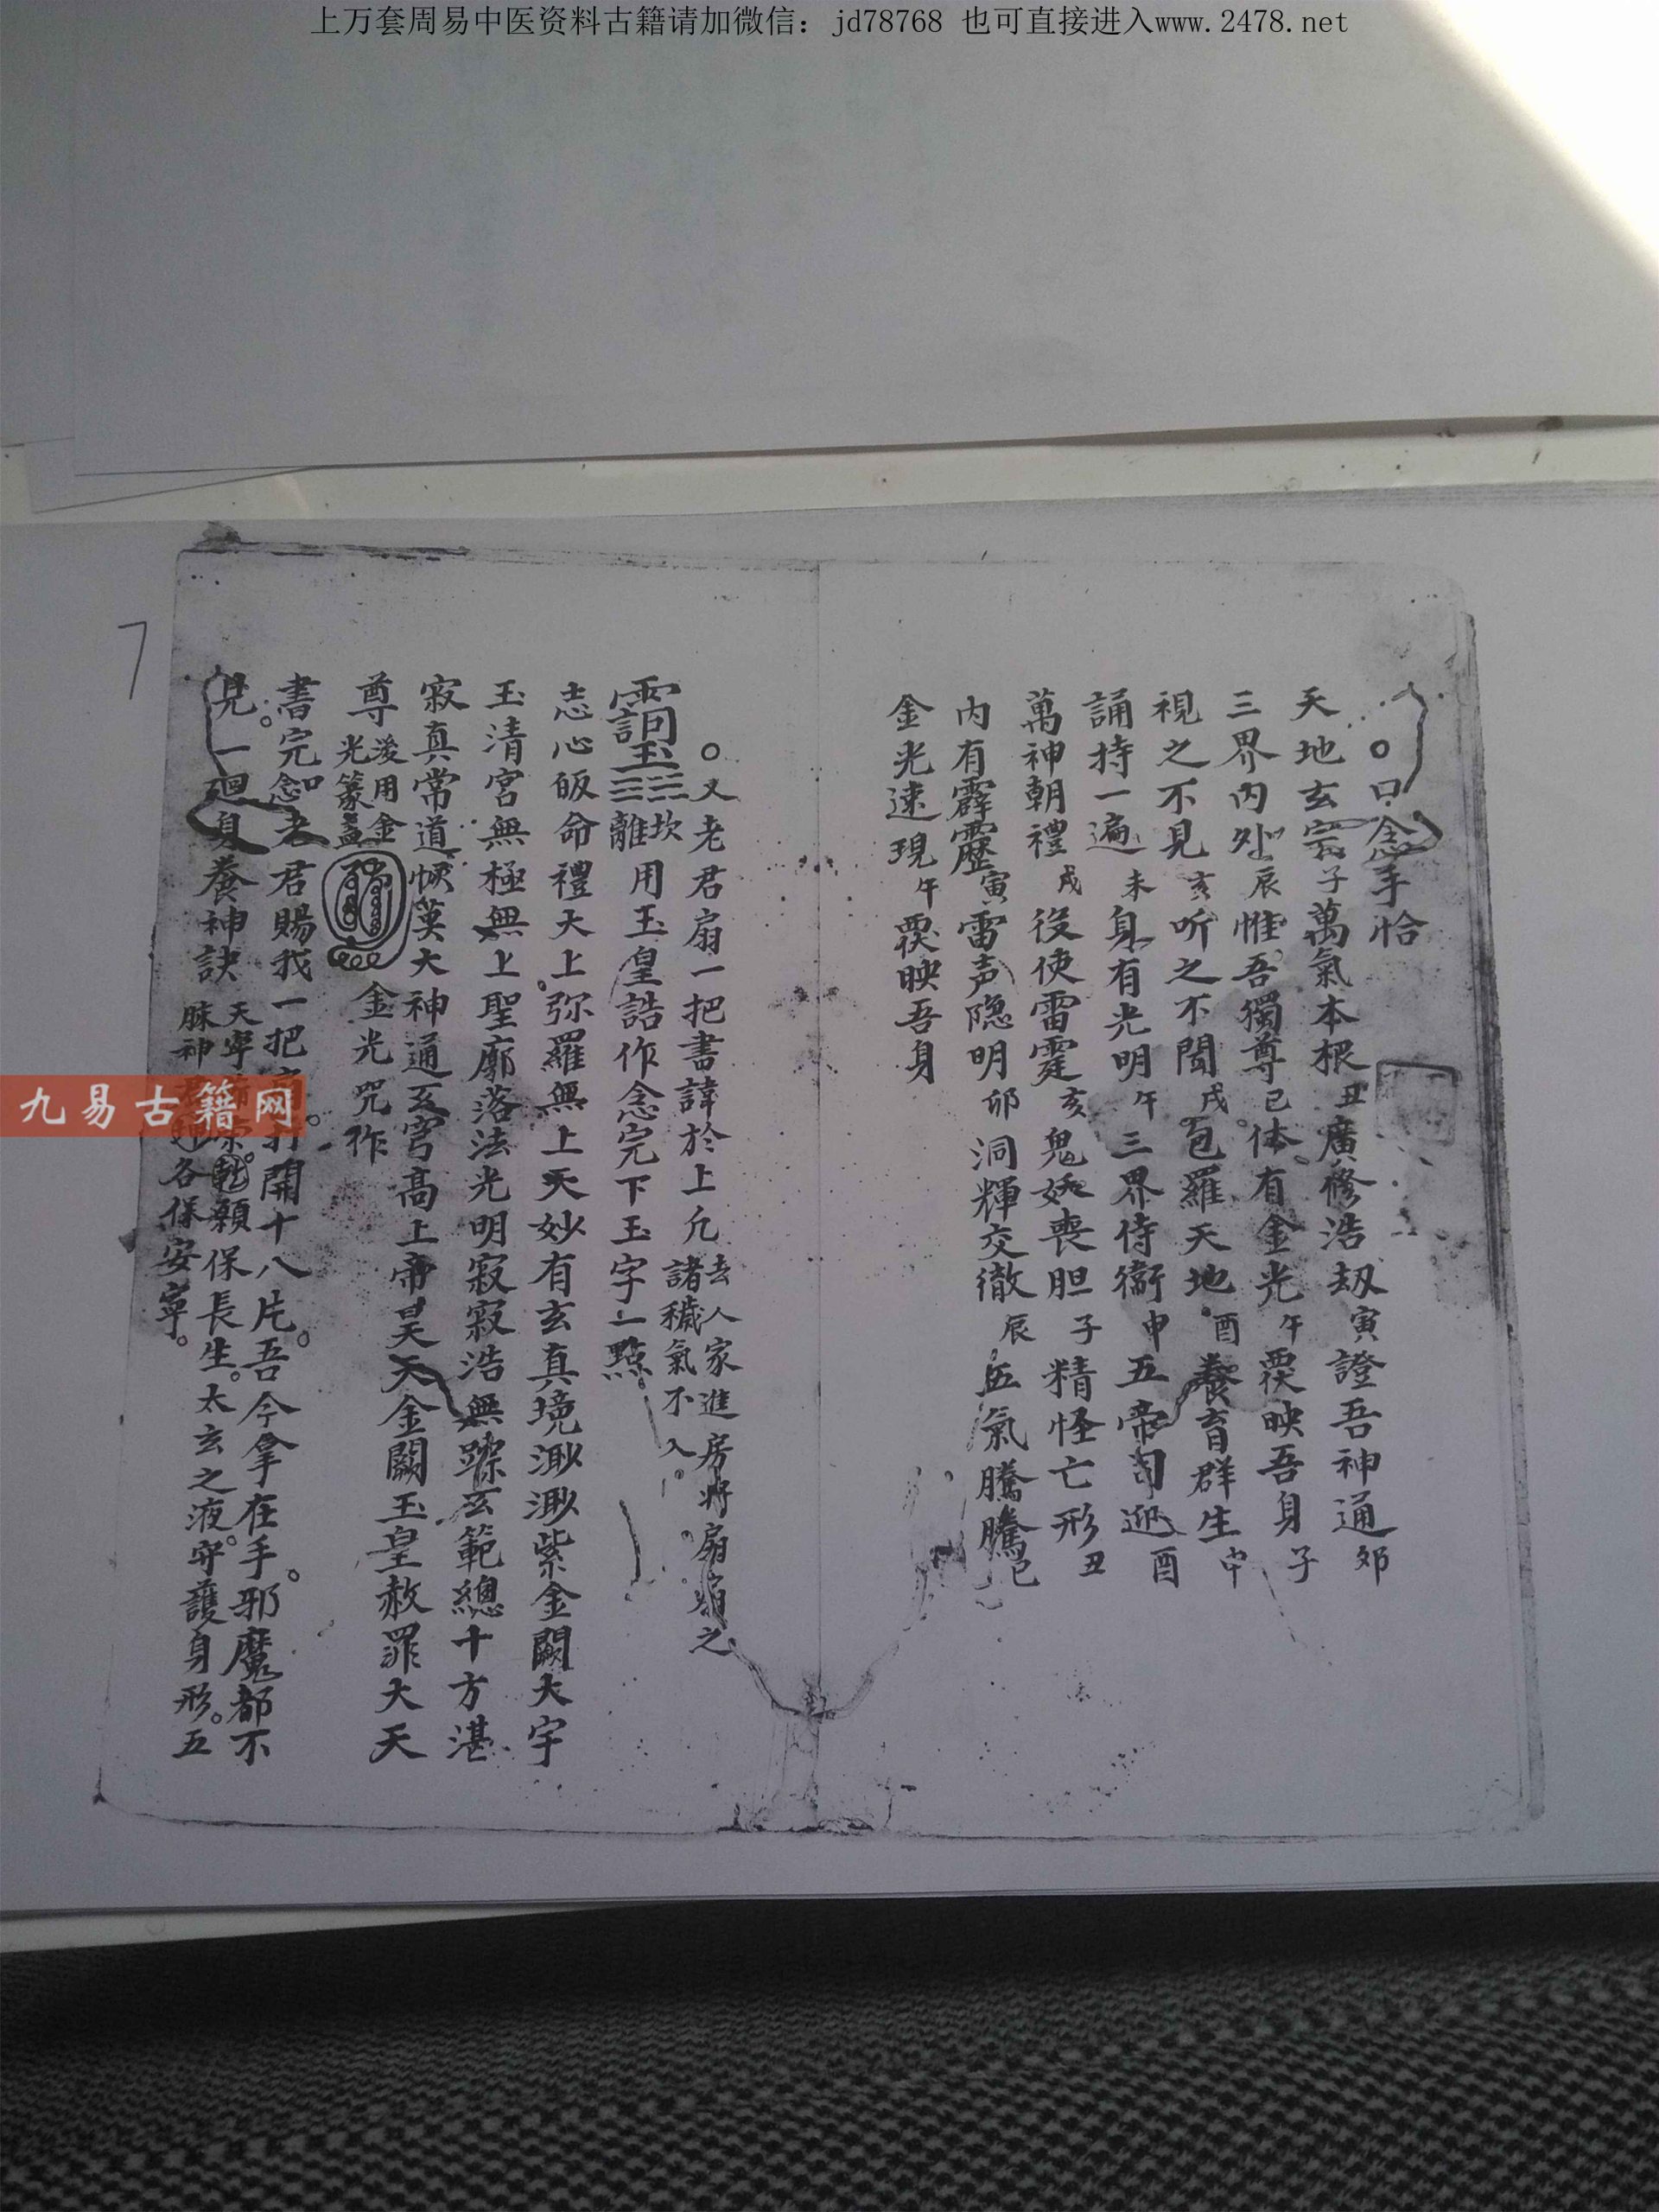 上万套周易中医资料古籍请加微信：jd78768 也可直接进入www.2478.net
○口念手恰
天地玄宗子萬氣本根丑廣修浩刼寅證吾神通夘
三界内外辰惟吾獨尊巳体有金光午覆映吾身子
視之不見亥听之不聞戌包羅天地酉養育群生申
誦持一遍未身有光明午三界侍衛申五帝司迎酉
萬神朝禮戌役使雷霆亥鬼妖喪胆子精怪亡形丑
内有霹靂寅雷声隐明卯洞輝交徹辰五氣騰騰巳
金光速現午覆映吾身
○又老君扇一把書諱於上凢去人家進房將扇扇之
諸穢氣不入。
坎離用玉皇誥作念完下玉字一點
志心皈命禮天上弥羅無上天妙有玄真境渺渺紫金闕大宇
玉清宮無極無上聖廓落法光明寂寂浩無踪玄範總十方湛
寂真常道恢漠大神通玄穹高上帝昊天金闕玉皇赦罪大天
尊後用金光篆蓋金光咒祚
書完口念老君賜我一把開十八片。吾今拿在手。邪魔都不
見。一廻身養神訣天寧保長生。太玄之液。守護身形。五
脉神各保安寧。
7
九易古籍网